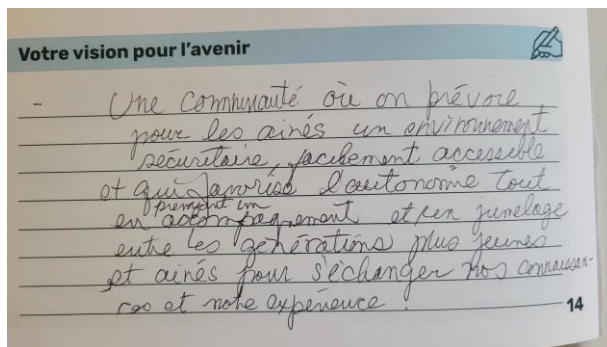 Votre vision pour l'avenir
- Une communauté où on prévoie
pour les ainés un environnement
sécuritaire, facilement accessible
et qui favorise l'autonomie tout
en promptant un accompagnement et un jumelage
entre les générations plus jeunes
et ainés pour s'échanger nos connaissan-
ces et notre expérience.
14